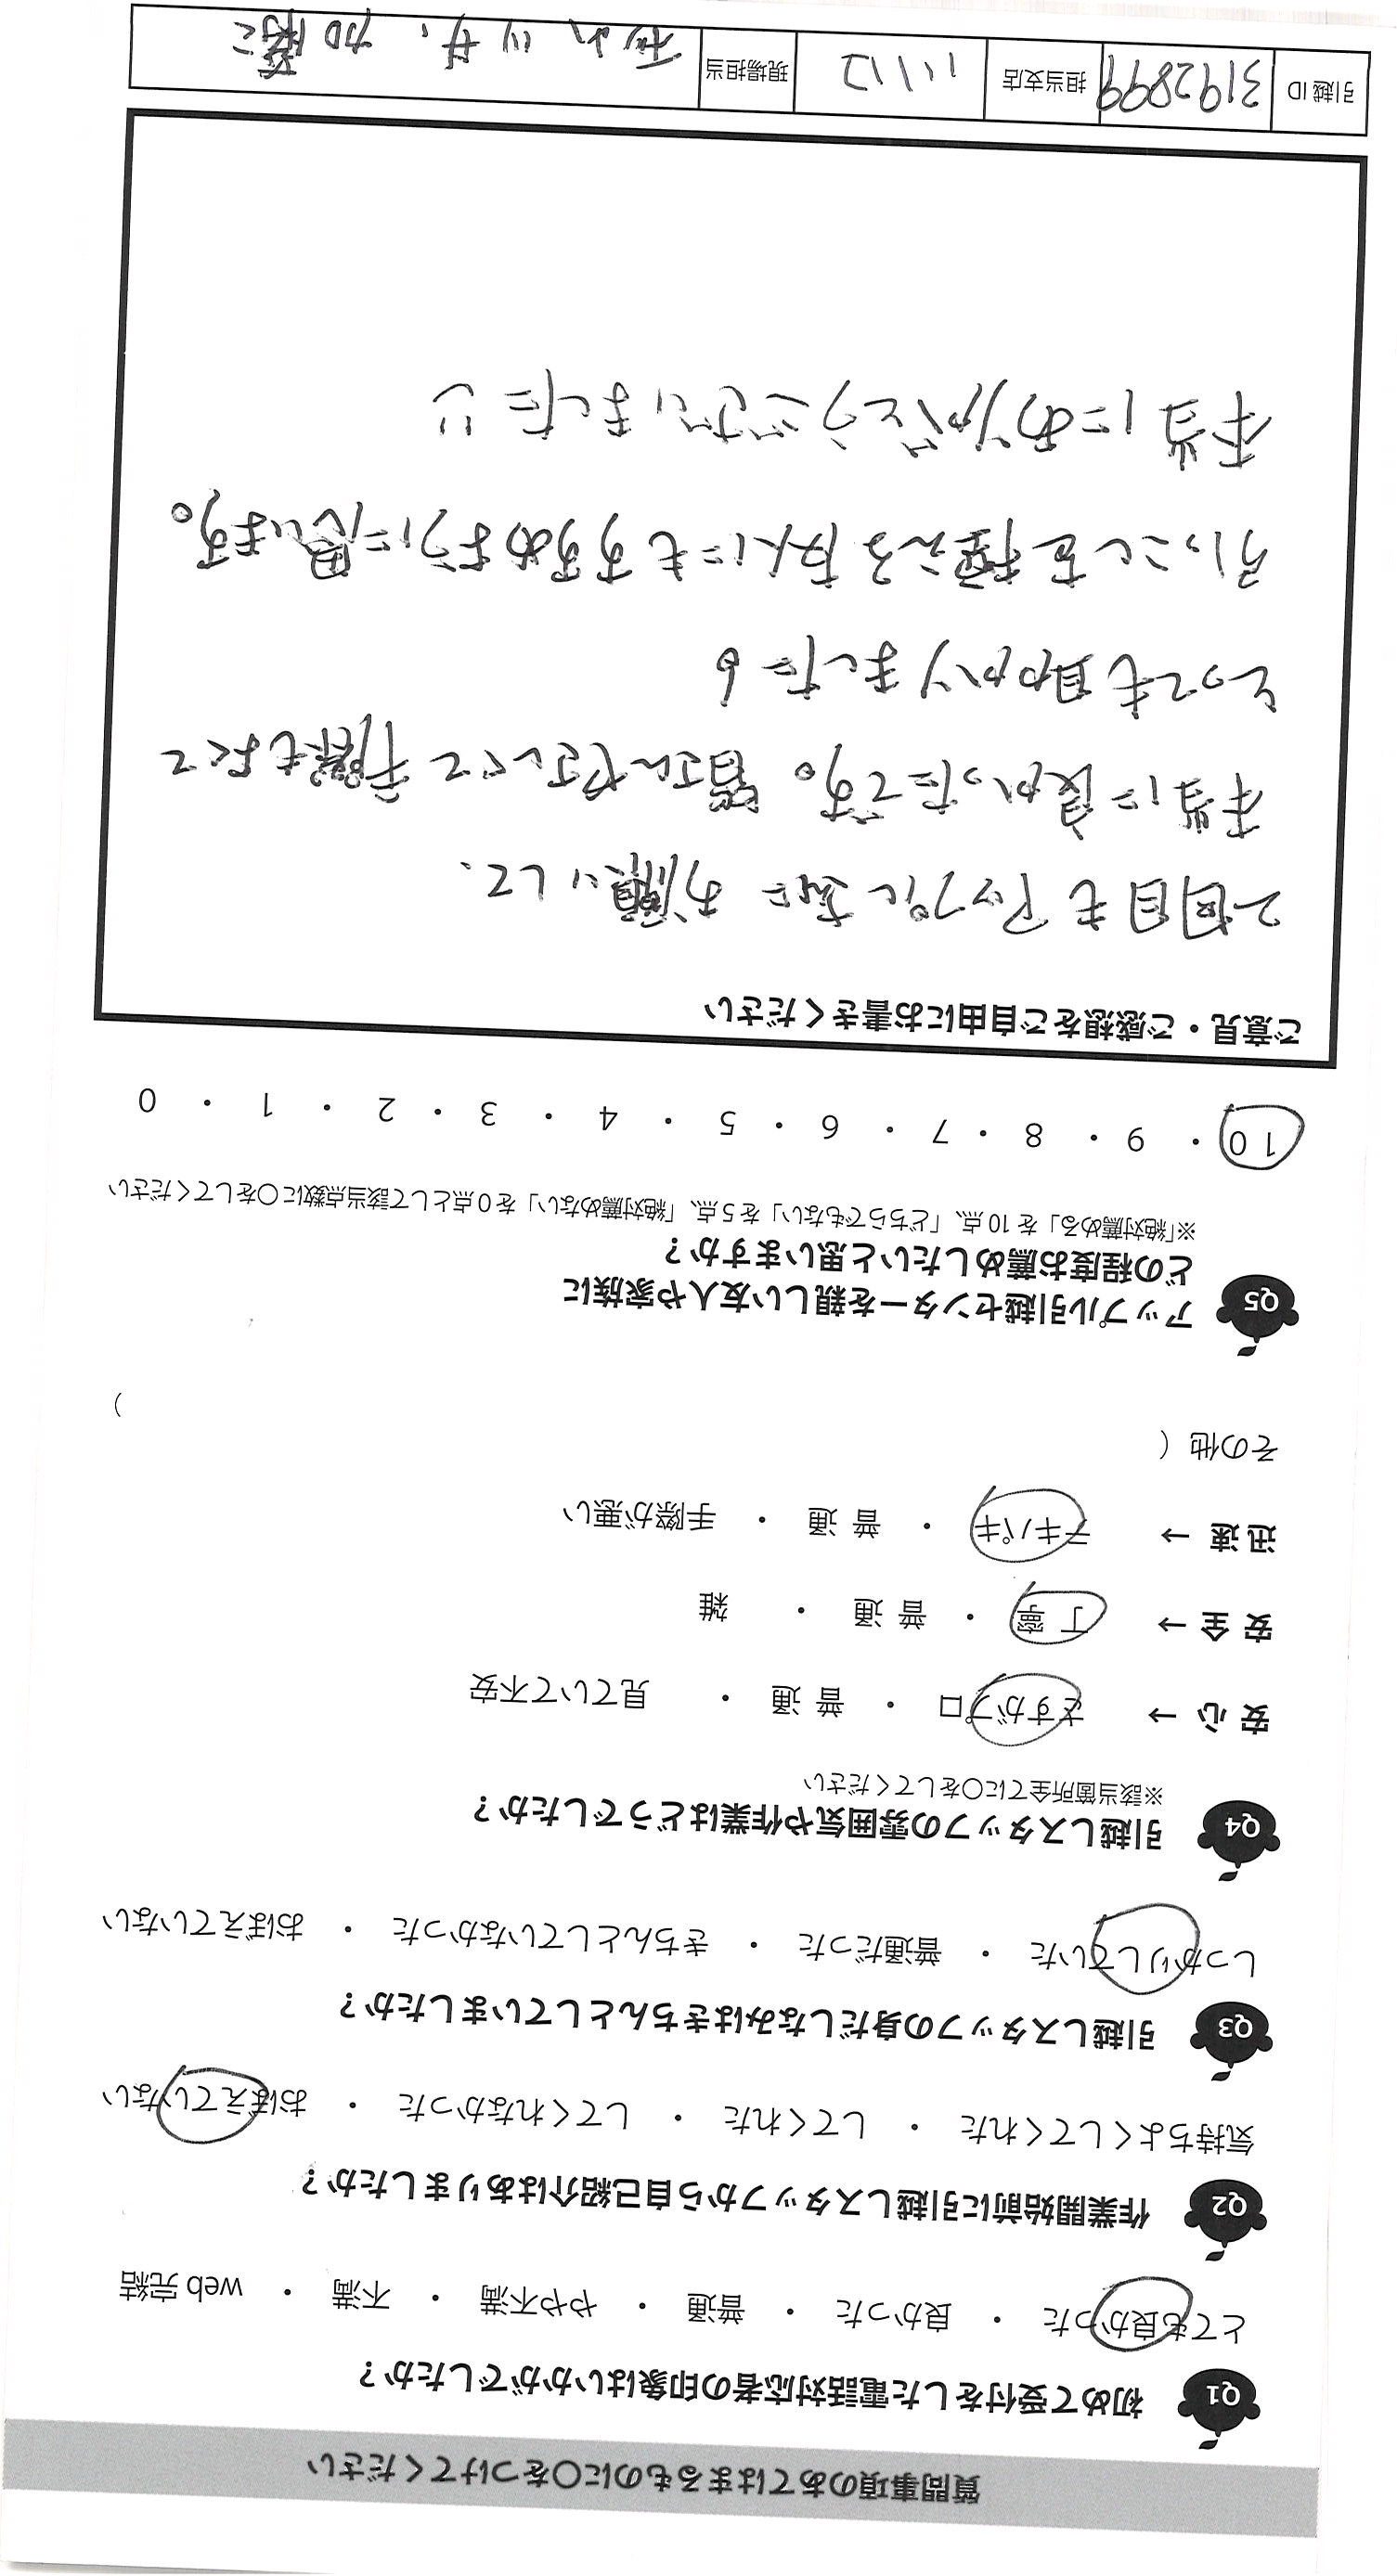 質問事項のあてはまるものに○をつけてください
Q1 初めて受付をした電話対応者の印象はいかがでしたか？
とても良かった ・ 良かった ・ 普通 ・ やや不満 ・ 不満 ・ web完結
Q2 作業開始前に引越しスタッフから自己紹介はありましたか？
気持ちよくしてくれた ・ してくれた ・ してくれなかった ・ おぼえていない
Q3 引越しスタッフの身だしなみはきちんとしていましたか？
しっかりしていた ・ 普通だった ・ きちんとしていなかった ・ おぼえていない
Q4 引越しスタッフの雰囲気や作業はどうでしたか？
※該当箇所全てに○をしてください
安心 → さすがプロ ・ 普通 ・ 見ていて不安
安全 → 丁寧 ・ 普通 ・ 雑
迅速 → テキパキ ・ 普通 ・ 手際が悪い
その他 (　　)
Q5 アップル引越センターを親しい友人や家族に
どの程度お薦めしたいと思いますか？
※「絶対薦める」を10点、「どちらでもない」を5点、「絶対薦めない」を0点として該当点数に○をしてください
10 ・ 9 ・ 8 ・ 7 ・ 6 ・ 5 ・ 4 ・ 3 ・ 2 ・ 1 ・ 0
ご意見・ご感想をご自由にお書きください
2回目もアップルさんにお願いして、
本当に良かったです。皆さんやさしくて手際もよくて
とっても助かりました。
引っこしを控える友人にもすすめようと思います。
本当にありがとうございました
引越ID 3192899 担当支店 川口 現場担当 加藤